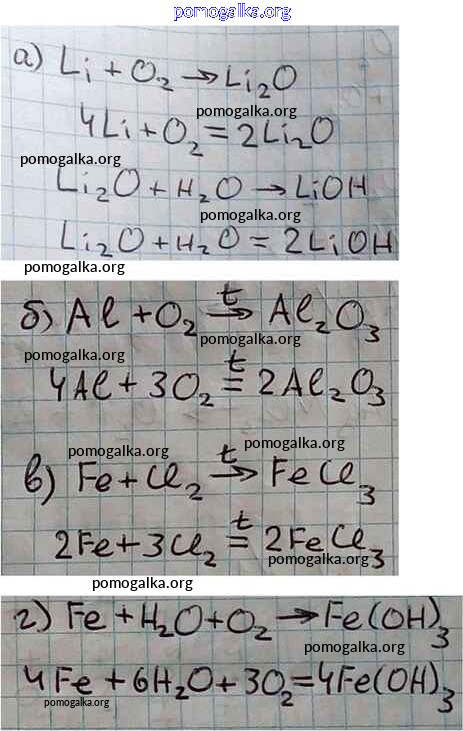 pomogalka.org
а) Li + O₂ → Li₂O
pomogalka.org
4Li + O₂ = 2Li₂O
pomogalka.org
Li₂O + H₂O → LiOH
pomogalka.org
Li₂O + H₂O = 2LiOH
pomogalka.org
б) Al + O₂ t→ Al₂O₃
pomogalka.org
pomogalka.org
4Al + 3O₂ t= 2Al₂O₃
pomogalka.org
pomogalka.org
в) Fe + Cl₂ t→ FeCl₃
2Fe + 3Cl₂ t= 2FeCl₃
pomogalka.org
pomogalka.org
г) Fe + H₂O + O₂ → Fe(OH)₃
pomogalka.org
4Fe + 6H₂O + 3O₂ = 4Fe(OH)₃
pomogalka.org